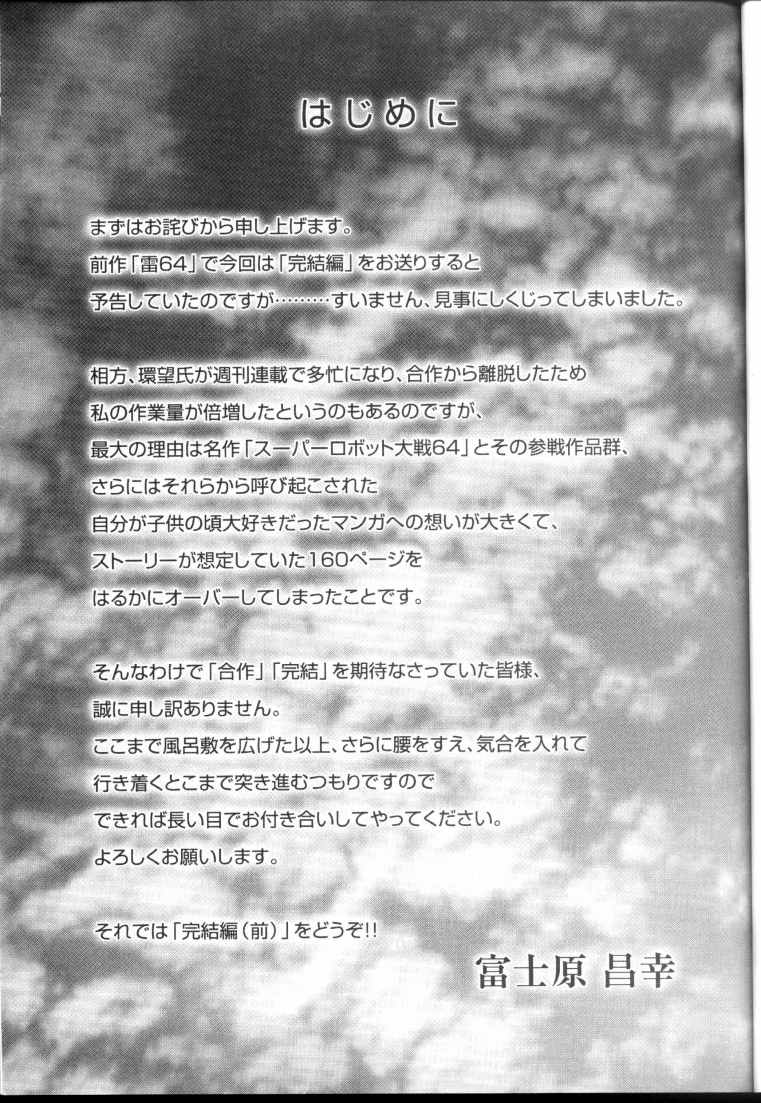 はじめに
まずはお詫びから申し上げます。
前作「雷64」で今回は「完結編」をお送りすると
予告していたのですが………すいません、見事にしくじってしまいました。
相方、環望氏が週刊連載で多忙になり、合作から離脱したため
私の作業量が倍増したというのもあるのですが、
最大の理由は名作「スーパーロボット大戦64」とその参戦作品群、
さらにはそれらから呼び起こされた
自分が子供の頃大好きだったマンガへの想いが大きくて、
ストーリーが想定していた160ページを
はるかにオーバーしてしまったことです。
そんなわけで「合作」「完結」を期待なさっていた皆様、
誠に申し訳ありません。
ここまで風呂敷を広げた以上、さらに腰をすえ、気合を入れて
行き着くとこまで突き進むつもりですので
できれば長い目でお付き合いしてやってください。
よろしくお願いします。
それでは「完結編(前)」をどうぞ!!
富士原 昌幸